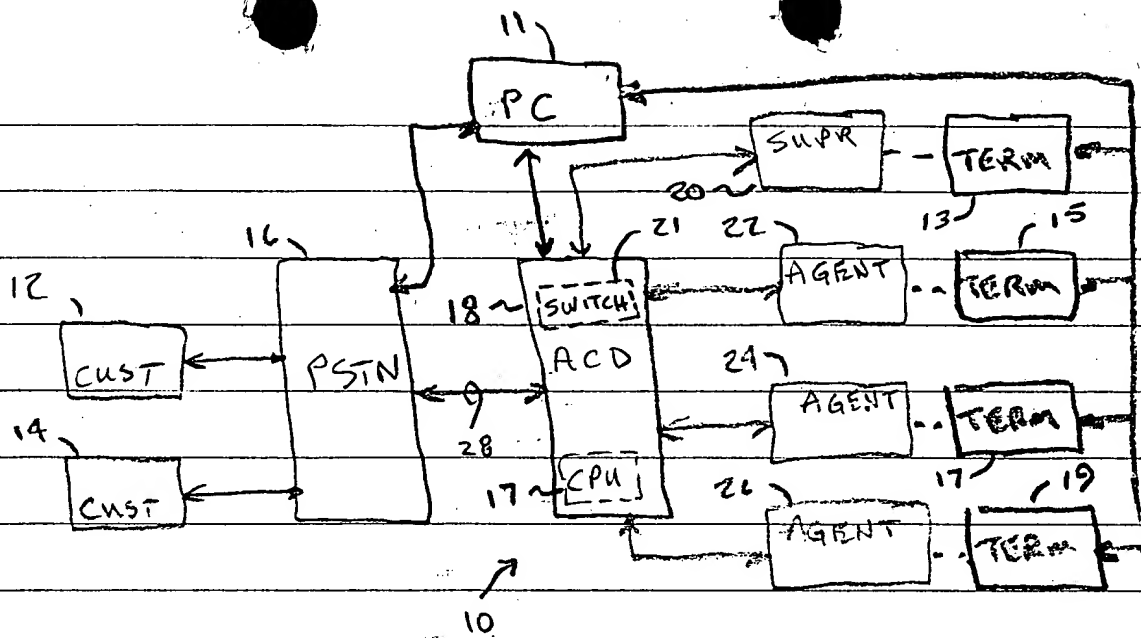 11
PC
SUPR
TERM
20
13
15
16
21
22
12
AGENT
TERM
18
SWITCH
CUST
PSTN
ACD
24
AGENT
TERM
14
28
CUST
17
CPU
26
17
19
AGENT
TERM
10